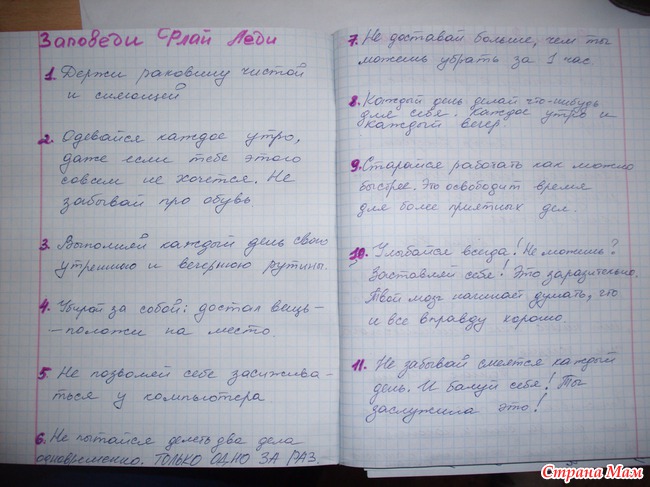 Заповеди Флай Леди
1. Держи раковину чистой
и сияющей
2. Одевайся каждое утро,
даже если тебе этого
совсем не хочется. Не
забывай про обувь.
3. Выполняй каждый день свою
утреннюю и вечернюю рутины.
4. Убирай за собой: достал вещь-
-положи на место.
5. Не позволяй себе засижива-
ться у компьютера
6. Не пытайся делеть два дела
одновременно. ТОЛЬКО ОДНО ЗА РАЗ.
7. Не доставай больше, чем ты
можешь убрать за 1 час.
8. Каждый день делай что-нибудь
для себя. Каждое утро и
каждый вечер
9. Старайся работать как можно
быстрее. Это освободит время
для более приятных дел.
10. Улыбайся всегда! Не можешь?
Заставляй себя! Это заразительно.
Твой мозг начинает думать, что
и все вправду хорошо
11. Не забывай смеятся каждый
день. И балуй себя! Ты
заслужила это!
Страна Мам